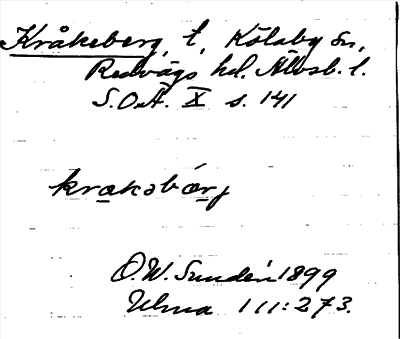 Kråkeberg, t, Kölaby sn,
Redvägs hd. Älvsb. l.
S.O.Ä. X s. 141
krakabärj
O.W. Sundén 1899
Ulma 111:273.